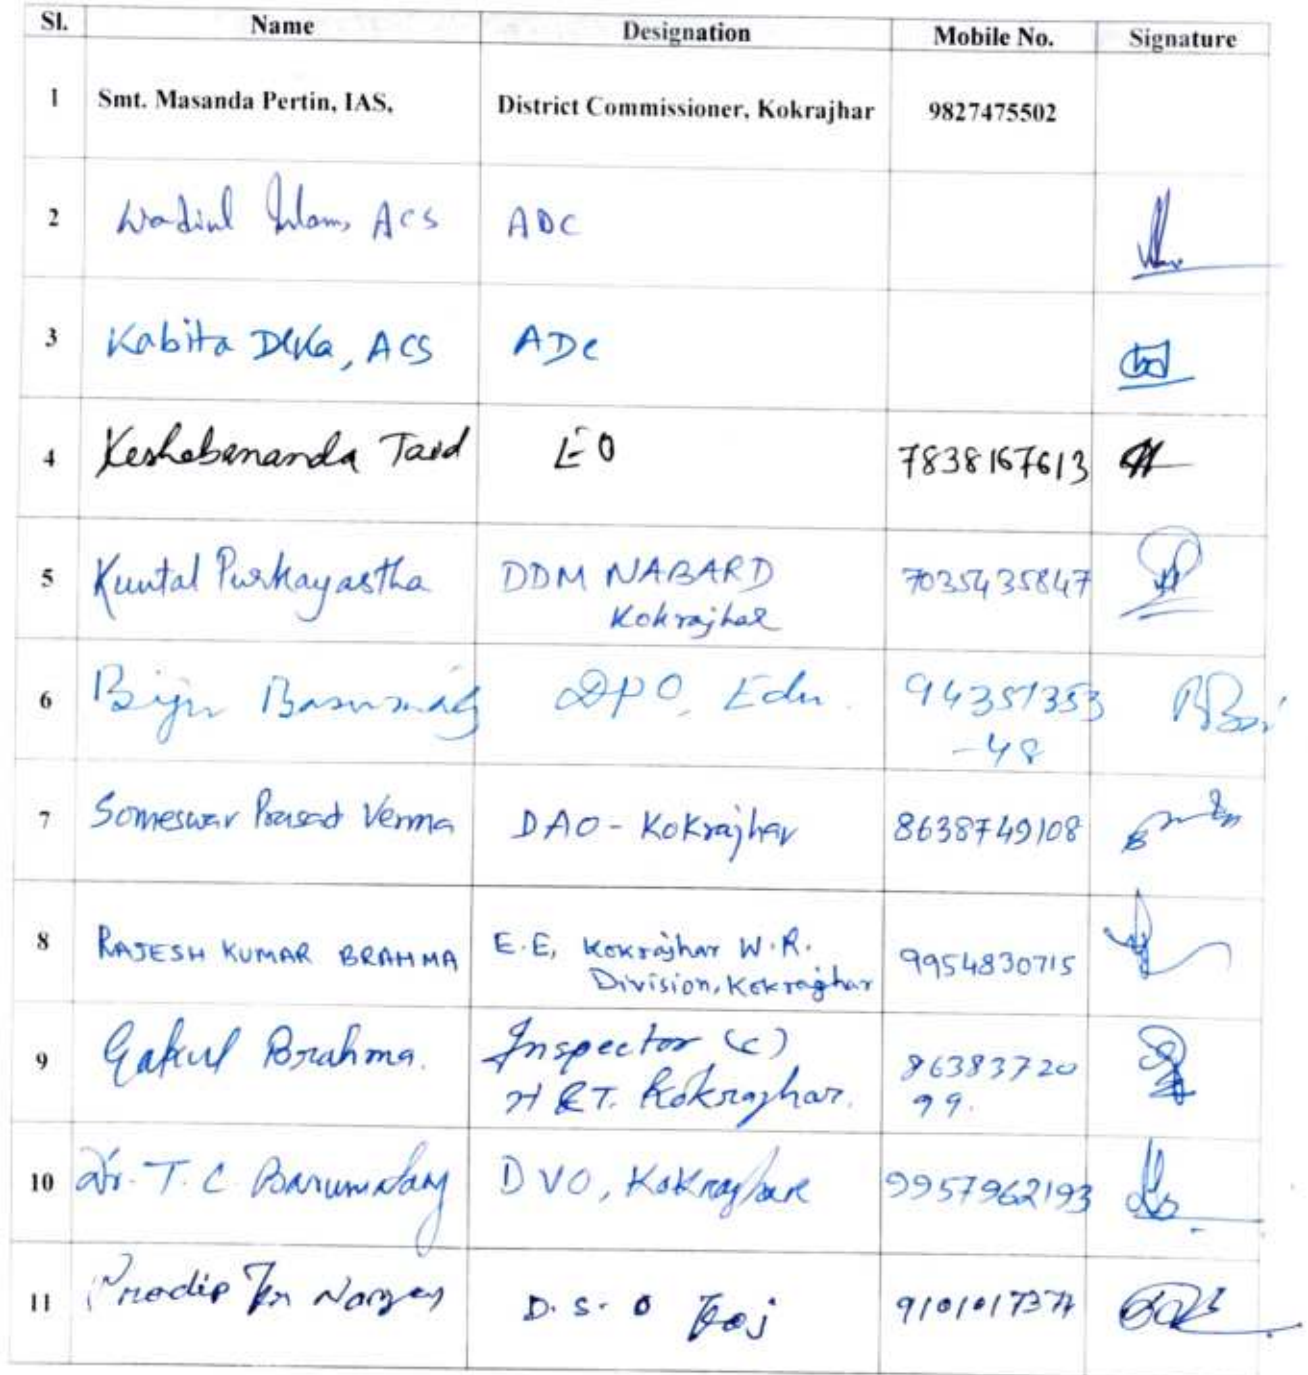 Sl. Name Designation Mobile No. Signature
1 Smt. Masanda Pertin, IAS, District Commissioner, Kokrajhar 9827475502
2 Wadiul Islam, ACS ADC
3 Kabita Deka, ACS ADC
4 Keshabananda Taid EO 7838167613
5 Kuntal Purkayastha DDM NABARD 7035435847
Kokrajhar
6 Biju Basumatary DPO, Edu. 94351353
-48
7 Someswar Prasad Verma DAO - Kokrajhar 8638749108
8 RAJESH KUMAR BRAHMA E.E, Kokrajhar W.R. 9954830715
Division, Kokrajhar
9 Gakul Brahma. Inspector (c) 86383720
H & T. Kokrajhar. 99.
10 Dr. T. C Basumatary DVO, Kokrajhar 9957962193
11 Pradip Kr Narzary D. S. O